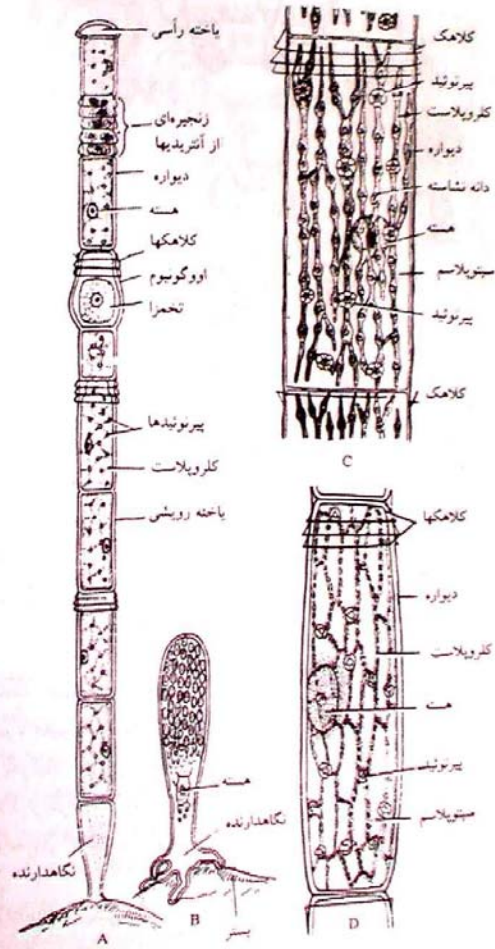 یاخته رأسی
زنجیره‌ای
از آنتریدیها
دیواره
هسته
کلاهکها
اووگونیوم
تخمزا
پیرنوئیدها
کلروپلاست
یاخته رویشی
نگاهدارنده
A
هسته
نگاهدارنده
بستر
B
کلاهک
پیرنوئید
کلروپلاست
دیواره
دانه نشاسته
هسته
سیتوپلاسم
پیرنوئید
کلاهک
C
کلاهکها
دیواره
کلروپلاست
هسته
پیرنوئید
سیتوپلاسم
D